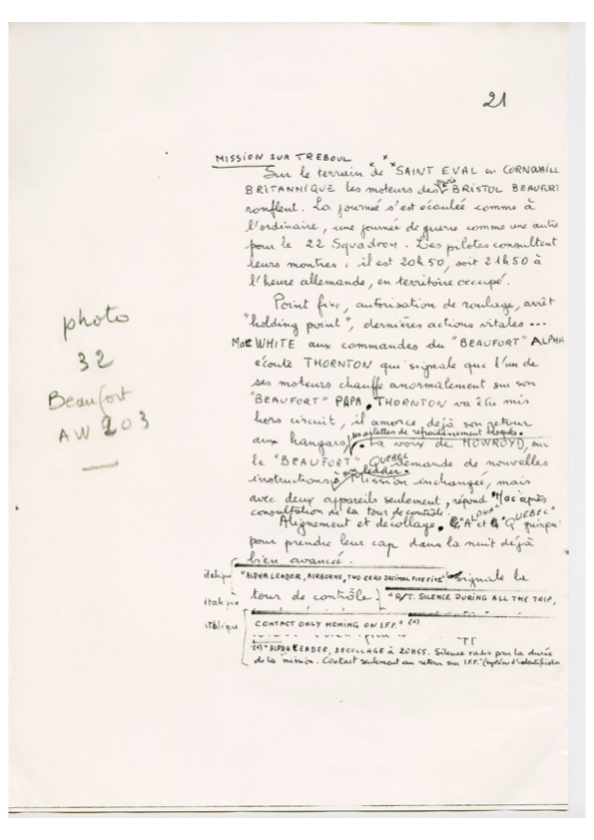 21
MISSION SUR TREBOUL
Sur le terrain de "SAINT EVAL en CORNOUAILL
BRITANNIQUE les moteurs des trois BRISTOL BEAUFORT
ronflent. La journée s'est écoulée comme à
l'ordinaire, une journée de guerre comme une autre
pour le 22 Squadron. Les pilotes consultent
leurs montres : il est 20h50, soit 21h50 à
l'heure allemande, en territoire occupé.
Point fixe, autorisation de roulage, arrêt
"holding point", dernières actions vitales ...
Mac WHITE aux commandes du "BEAUFORT" ALPHA
écoute THORNTON qui signale que l'un de
ses moteurs chauffe anormalement sur son
"BEAUFORT" PAPA. THORNTON va être mis
hors circuit, il amorce déjà son retour
aux hangars, volets de refroidissement bloqués. La voix de HOWROYD, sur
le "BEAUFORT" QUEBEC demande de nouvelles
instructions à son leader. Mission inchangée, mais
avec deux appareils seulement, répond Mac après
consultation de la tour de contrôle.
Alignement et décollage. "A" ALPHA et "Q" QUEBEC
pour prendre leur cap dans la nuit déjà
bien avancée.
italique "ALPHA LEADER, AIRBORNE, TWO ZERO DECIMAL FIVE FIVE" signale la
tour de contrôle
italique "R/T. SILENCE DURING ALL THE TRIP,
italique CONTACT ONLY HOMING ON I.F.F." (*)
(*) "ALPHA LEADER, DECOLLAGE à 20H55. Silence radio pour la durée
de la mission. Contact seulement au retour sur I.F.F." (système d'identification
photo
32
Beaufort
AW 203